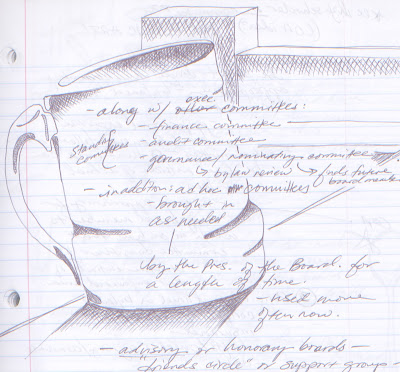 exec.
- along w/ other committees:
- finance committee
Standing committees
- audit committee
- governance/nominating committee
↳ bylaw review ↳ finds future board members
- in addition: ad hoc committees
- brought in
as needed
by the Pres. of the Board. for
a length of time.
- used more
often now.
- advisory or honorary boards -
"friends circle" or support group -